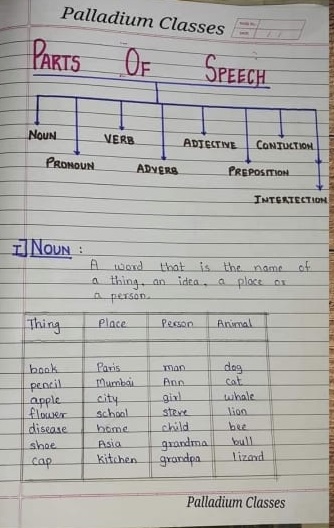 Palladium Classes
PARTS OF SPEECH
NOUN VERB ADJECTIVE CONJUCTION
PRONOUN ADVERB PREPOSITION
INTERJECTION
I] NOUN :
A word that is the name of
a thing, an idea, a place or
a person.
Thing Place Person Animal
book Paris man dog
pencil Mumbai Ann cat
apple city girl whale
flower school steve lion
disease home child bee
shoe Asia grandma bull
cap kitchen grandpa lizard
Palladium Classes